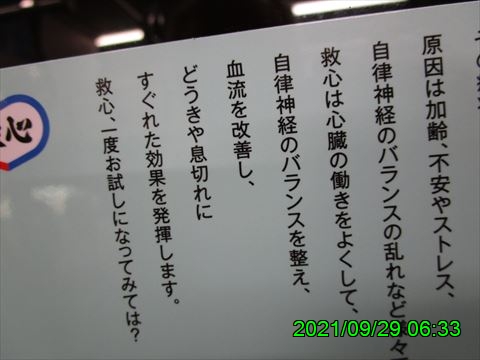 原因は加齢、不安やストレス、
自律神経のバランスの乱れなど
救心は心臓の働きをよくして、
自律神経のバランスを整え、
血流を改善し、
どうきや息切れに
すぐれた効果を発揮します。
救心、一度お試しになってみては?
心
2021/09/29 06:33